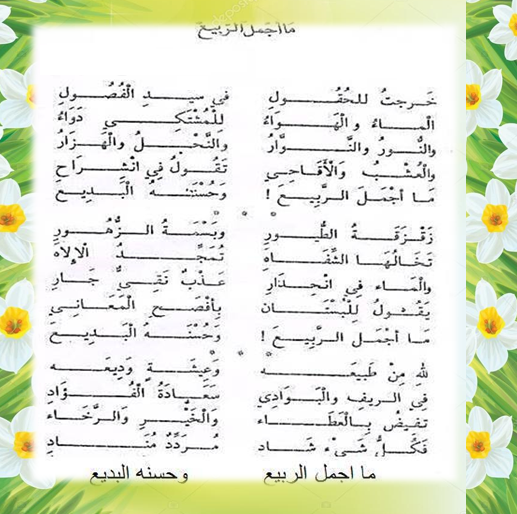 ما أجمل الربيع
خَرجتُ للحُقُولِ في سيدِ الْفُصُولِ
الْماءُ والْهَوَاءُ لِلْمُشْتَكِي دَوَاءُ
والنُّورُ والنُّوَّارُ والنَّحْلُ والْهَزَارُ
والْعُشْبُ وَالْأَقَاحِي تَقُولُ فِي انْشِرَاحِ
مَا أجْمَلَ الرَّبِيعَ ! وَحُسْنَهُ الْبَدِيعَ
زَقْزَقَةُ الطُّيورِ وبَسْمَةُ الزُّهُورِ
تَخَالُهَا الشِّفَاهِ تُمَجِّدُ الْإِلاهَ
والْمَاء فِي انْحِدَارِ عَذْبٌ نَقِيٌّ جَارِ
يَقُولُ لِلْبُسْتَانِ بِأَفْصَحِ الْمَعَانِي
مَا أجْمَلَ الرَّبِيعَ ! وَحُسْنَهُ الْبَدِيعَ
للهِ مِنْ طَبِيعَه وَعِيشَةٍ وَدِيعَه
فِي الرِيفِ والْبَوَادِي سَعَادَةُ الْفُؤَادِ
تفِيضُ بِالْعَطَاء وَالْخَيْرِ وَالرَّخَاء
فَكُلُّ شَيْءٍ شَادِ مُرَدِّدٌ مُنَادِ
ما اجمل الربيع وحسنه البديع